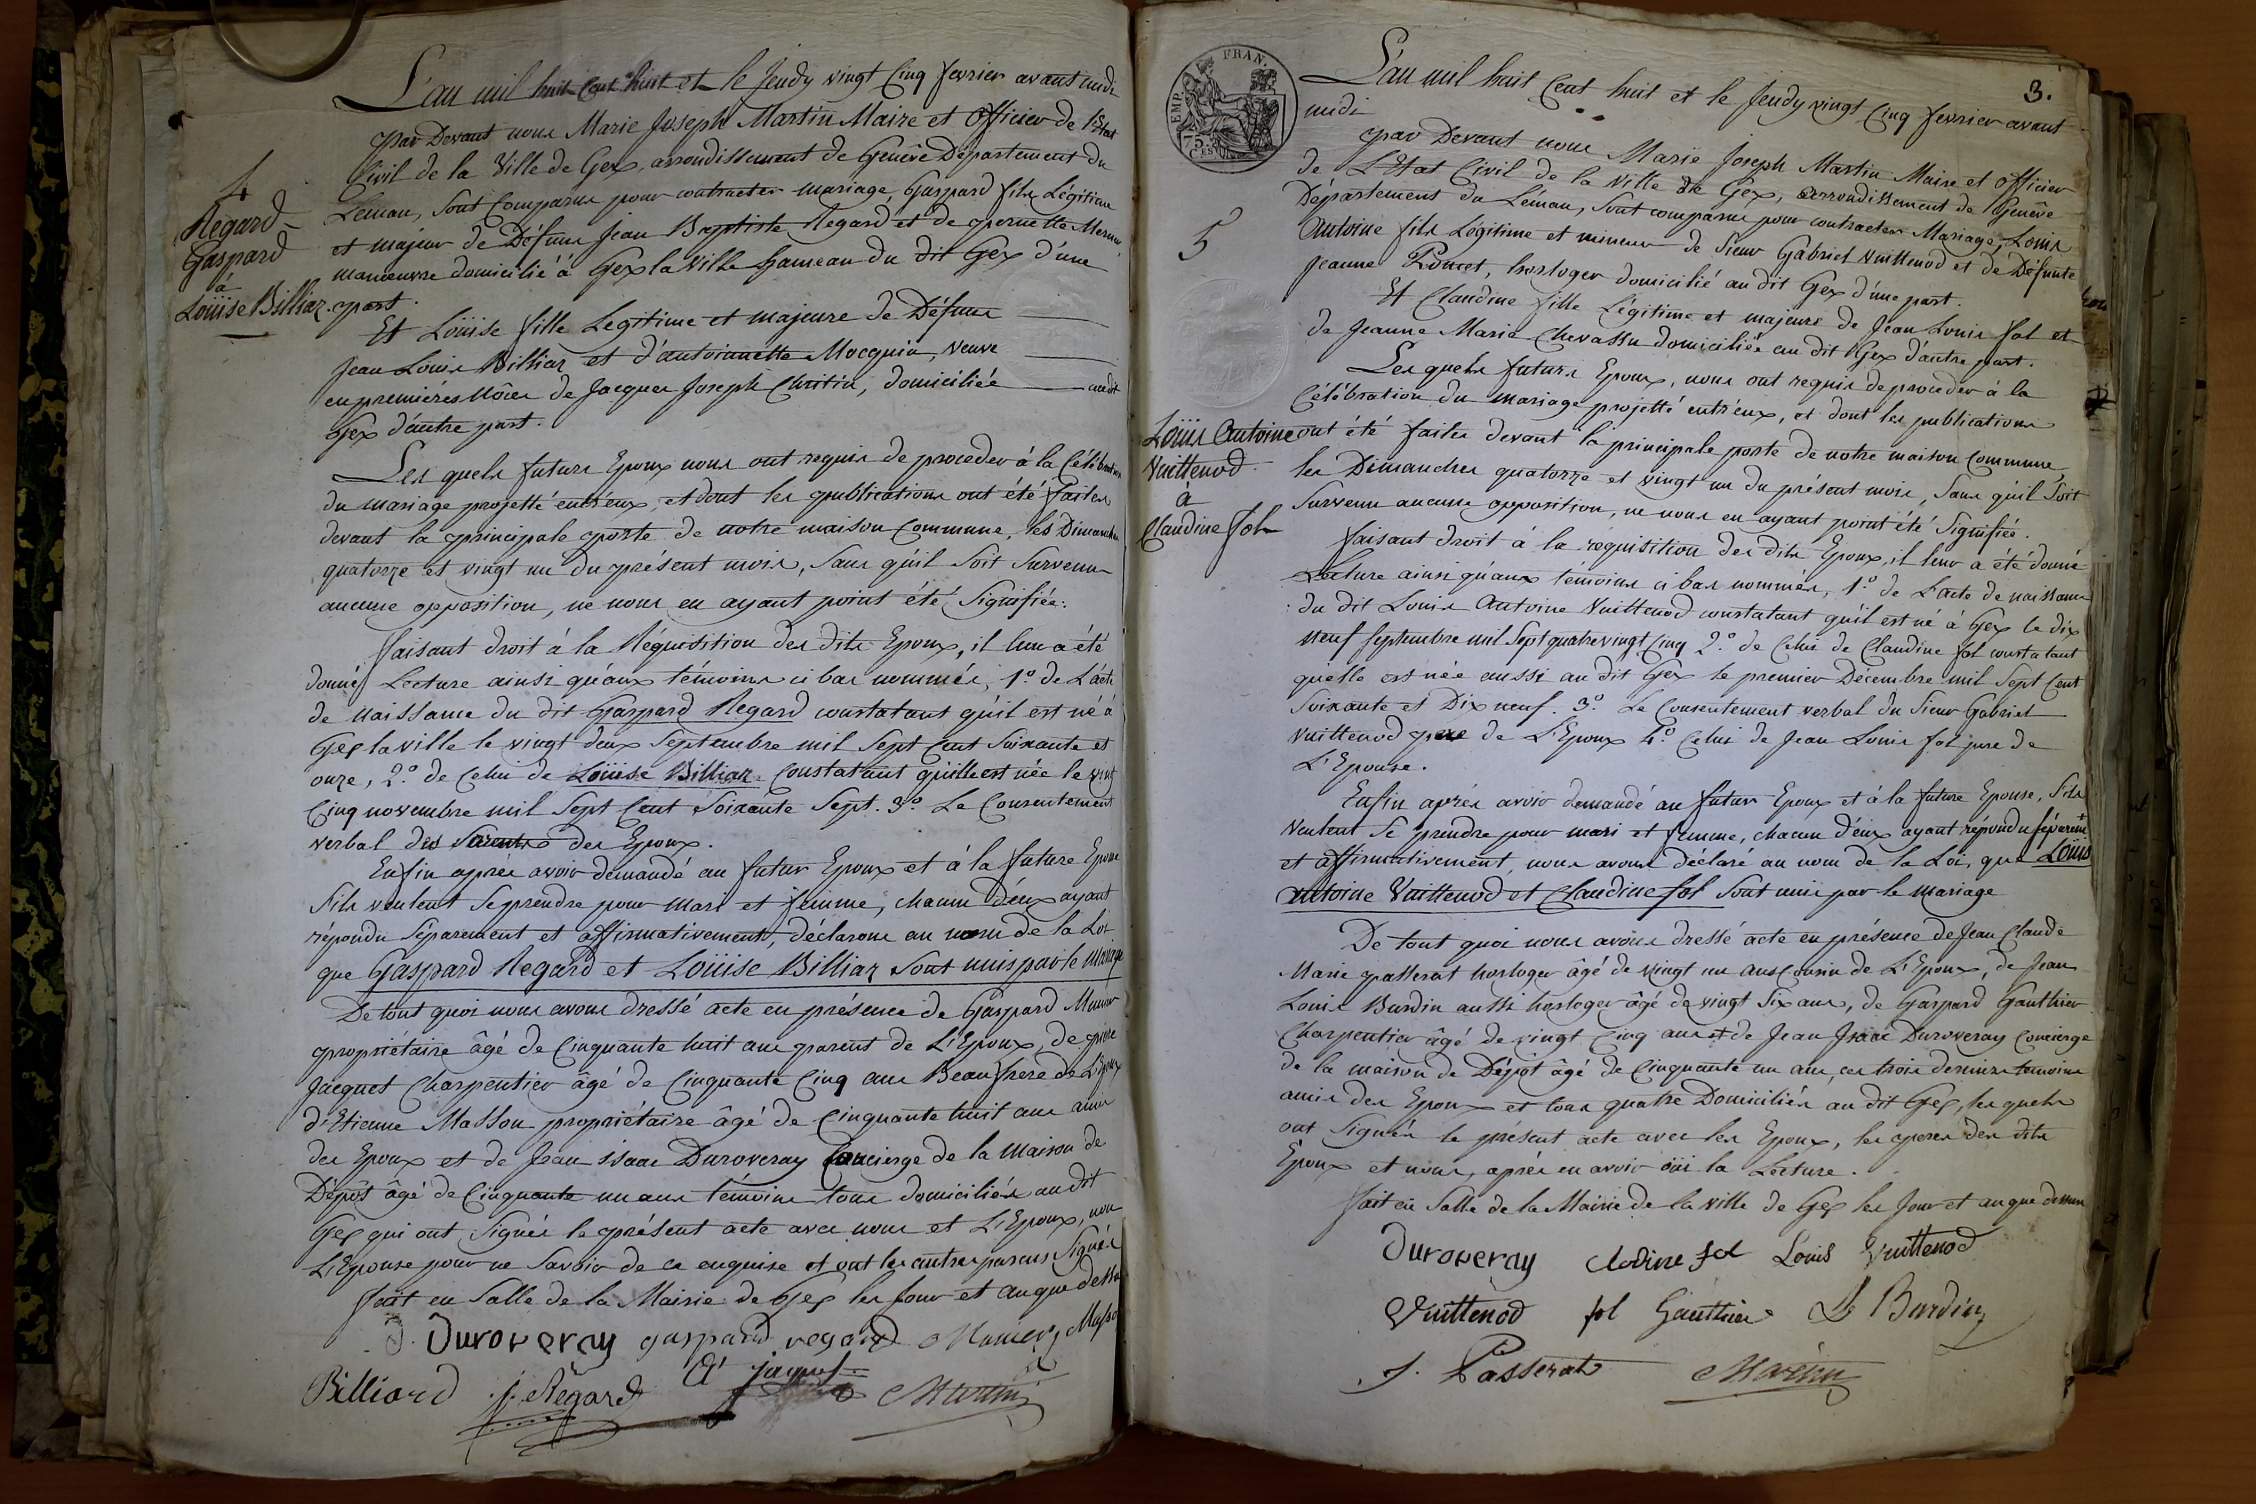 4
Regard
Gaspard
à
Loüise Billiaz.
L'an mil huit Cent huit et le Jeudy vingt Cinq fevrier avant midi
par Devant nous Marie Joseph Martin Maire et officier de l'Etat
Civil de la Ville de Gex, arrondissement de Genêve Département du
Leman, sont Comparus pour contracter mariage, Gaspard fils Légitime
et majeur de Défunt Jean Baptiste Regard et de pernette
manœuvre domicilié à Gex la Ville hameau du dit Gex d'une
part.
Et Loüise fille Legitime et majeure de Défunt
Jean Louis Billiaz et d'antoinette Mocquin, veuve
en premières Nôces de Jacques Joseph Chritin, domiciliée audit
Gex d'autre part.
Les quels futurs Epoux nous ont requis de proceder à la Célébration
du mariage projetté entr'eux, et dont les publications ont été faites
devant la principale porte de notre maison Commune, les Dimanches
quatorze et vingt un du présent mois, sans qu'il soit survenu
aucune opposition, ne nous en ayant point été signifiée.
faisant droit à la Réquisition des dits Epoux, il leur a été
donné Lecture ainsi qu'aux témoins ci bas nommés, 1.o de L'acte
de Naissance du dit Gaspard Regard constatant qu'il est né à
Gex la ville le vingt deux Septembre mil Sept Cent Soixante et
onze, 2.o de Celui de Loüise Billiaz Constatant qu'elle est née le vingt
Cinq novembre mil Sept Cent Soixante Sept. 3.o Le Consentement
verbal des des Epoux.
Enfin après avoir demandé au futur Epoux et à la future Epouse
s'ils veulent se prendre pour mari et femme, chacun d'eux ayant
répondu séparement et affirmativement, déclarons au nom de la Loi
que Gaspard Regard et Loüise Billiaz sont unis par le Mariage
De tout quoi nous avons dressé acte en présence de Gaspard
propriétaire âgé de Cinquante huit ans parent de L'Epoux, de pierre
Jacquet Charpentier âgé de Cinquante Cinq ans Beaufrere de L'Epoux
d'Etienne Masson propriétaire âgé de Cinquante huit ans amis
des Epoux et de Jean isaac Duroveray Concierge de la Maison de
Dépôt âgé de Cinquante un ans témoins tous domiciliés au dit
Gex qui ont signés le présent acte avec nous et L'Epoux, non
L'Epouse pour ne savoir de ce enquise et ont les autres parens signés
fait en Salle de la Mairie de Gex les Jour et an que dessus
J. Duroveray gaspard regard
Billiard j. Regard jaquet Martin
3.
EMP. FRAN.
75 CES
5
Loüis Antoine
Vuittenod
à
Claudine fol
L'an mil huit Cent huit et le Jeudy vingt Cinq fevrier avant
midi
par Devant nous Marie Joseph Martin Maire et officier
de L'Etat Civil de la Ville de Gex, arrondissement de Genêve
Département du Léman, sont comparus pour contracter Mariage, Louis
Antoine fils Légitime et mineur de Sieur Gabriel Vuittenod et de Défunte
Jeanne Poncet, horloger domicilié au dit Gex d'une part.
Et Claudine fille Légitime et majeure de Jean Louis fol et
de Jeanne Marie Chevassu domiciliée au dit Gex d'autre part.
Les quels futurs Epoux, nous ont requis de proceder à la
Célébration du mariage projetté entr'eux, et dont les publications
ont été faites devant la principale porte de notre maison Commune,
les Dimanches quatorze et vingt un du présent mois, sans qu'il soit
survenu aucune opposition, ne nous en ayant point été signifiée.
faisant droit à la réquisition des dits Epoux, il leur a été donné
Lecture ainsi qu'aux témoins ci bas nommés, 1.o de L'acte de naissance
du dit Louis Antoine Vuittenod constatant qu'il est né à Gex le dix
neuf septembre mil Sept quatre vingt Cinq 2.o de Celui de Claudine fol constatant
qu'elle est née aussi au dit Gex le premier Décembre mil Sept Cent
Soixante et Dix neuf. 3.o Le Consentement verbal du Sieur Gabriel
Vuittenod pere de L'Epoux 4.o Celui de Jean Louis fol pere de
L'Epouse.
Enfin après avoir demandé au futur Epoux et à la future Epouse, s'ils
veulent se prendre pour mari et femme, chacun d'eux ayant répondu séparémt
et affirmativement, nous avons déclaré au nom de la Loi, que Loüis
Antoine Vuittenod et Claudine fol sont unis par le Mariage
De tout quoi nous avons dressé acte en présence de Jean Claude
Marie passerat horloger âgé de vingt un ans Cousin de L'Epoux, de Jean
Louis Burdin aussi horloger âgé de vingt six ans, de Gaspard Gauthier
Charpentier âgé de vingt Cinq ans et de Jean Isaac Duroveray Concierge
de la maison de Dépôt âgé de Cinquante un ans, ces trois derniers témoins
amis des Epoux et tous quatre Domiciliés au dit Gex, les quels
ont signés le présent acte avec les Epoux, les peres des dits
Epoux et nous, après en avoir oüi la Lecture.
fait en Salle de la Mairie de la ville de Gex les Jour et an que dessus
Duroveray clodine fol Louis Vuittenod
Vuittenod fol Gauthier Ls Burdin
J. Passerat Martin